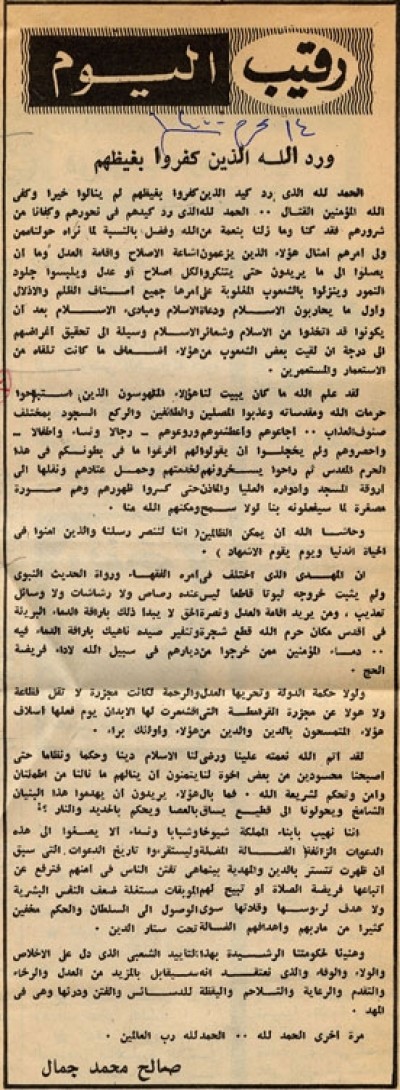 رقيب اليوم
١٤ محرم ١٤٠٠
ورد الله الذين كفروا بغيظهم
الحمد لله الذى رد كيد الذين كفروا بغيظهم لم ينالوا خيرا وكفى
الله المؤمنين القتال ٠٠ الحمد لله الذى رد كيدهم فى نحورهم وكفانا من
شرورهم فقد كنا وما زلنا بنعمة من الله وفضل بالنسبة لما نراه حولنا ممن
ولى أمرهم أمثال هؤلاء الذين يزعمون اشاعة الاصلاح واقامة العدل وما أن
يصلوا الى ما يريدون حتى يتنكروا لكل اصلاح أو عدل ويلبسوا جلود
النمور وينزلوا بالشعوب المغلوبة على أمرها جميع أصناف الظلم والاذلال
وأول ما يحاربون الاسلام ودعاة الاسلام ومبادىء الاسلام بعد أن
يكونوا قد اتخذوا من الاسلام وشعائر الاسلام وسيلة الى تحقيق أغراضهم
الى درجة ان لقيت بعض الشعوب من هؤلاء أضعاف ما كانت تلقاه من
الاستعمار والمستعمرين ٠
لقد علم الله ما كان يبيت لنا هؤلاء المهووسون الذين استباحوا
حرمات الله ومقدساته وعذبوا المصلين والطائفين والركع السجود بمختلف
صنوف العذاب ٠٠ أجاعوهم وأعطشوهم وروعوهم ــ رجالا ونساء وأطفالا ــ
واحصروهم ولم يخجلوا أن يقولوا لهم أفرغوا ما فى بطونكم فى هذا
الحرم المقدس ثم راحوا يسخرونهم لخدمتهم وحمل عتادهم ونقلها الى
أروقة المسجد وأدواره العليا والمآذن حتى كسروا ظهورهم وهم صورة
مصغرة لما سيفعلونه بنا لولا سمح ومكنهم الله منا ٠
وحاشا الله أن يمكن الظالمين ( اننا لننصر رسلنا والذين آمنوا فى
الحياة الدنيا ويوم يقوم الاشهاد ) ٠
ان المهدى الذى اختلف فى أمره الفقهاء ورواة الحديث النبوى
ولم يثبت خروجه ثبوتا قاطعا ليس عنده رصاص ولا رشاشات ولا وسائل
تعذيب ، ومن يريد اقامة العدل ونصرة الحق لا يبدأ ذلك باراقة الدماء البريئة
فى أقدس مكان حرم الله قطع شجرة وتنفير صيده ناهيك باراقة الدماء فيه
٠٠ دماء المؤمنين ممن خرجوا من ديارهم فى سبيل الله لاداء فريضة
الحج ٠
ولولا حكمة الدولة وتحريها العدل والرحمة لكانت مجزرة لا تقل فظاعة
ولا هولا عن مجزرة القرامطة التى اقشعرت لها الابدان يوم فعلها أسلاف
هؤلاء المتمسحون بالدين والدين من هؤلاء وأولئك براء ٠
لقد أتم الله نعمته علينا ورضى لنا الاسلام دينا وحكما ونظاما حتى
أصبحنا محسودين من بعض اخوة لنا يتمنون أن ينالهم ما نالنا من اطمئنان
وأمن وتحكم لشريعة الله ٠ فما بال هؤلاء يريدون أن يهدموا هذا البنيان
الشامخ ويحولونا الى قطيع يساق بالعصا ويحكم بالحديد والنار ؟؟
اننا نهيب بأبناء المملكة شيوخا وشبابا ونساء ألا يصغوا الى هذه
الدعوات الزائفة الضالة المضلة وليستقرءوا تاريخ الدعوات التى سبق
أن ظهرت تتستر بالدين والمهدية بينما هى تفتن الناس فى أمنهم فترفع عن
أتباعها فريضة الصلاة أو تبيح لهم الموبقات مستغلة ضعف النفس البشرية
ولا هدف لرءوسها وقادتها سوى الوصول الى السلطان والحكم مخفين
كثيرا من مآربهم وأهدافهم الضالة تحت ستار الدين ٠
وهنيئا لحكومتنا الرشيدة بهذا التأييد الشعبى الذى دل على الاخلاص
والولاء والوفاء والذى نعتقد أنه سيقابل بالمزيد من العدل والرخاء
والتقدم والرعاية والتلاحم واليقظة للدسائس والفتن ودرئها وهى فى
المهد ٠
مرة أخرى الحمد لله ٠٠ الحمد لله رب العالمين ٠
صالح محمد جمال